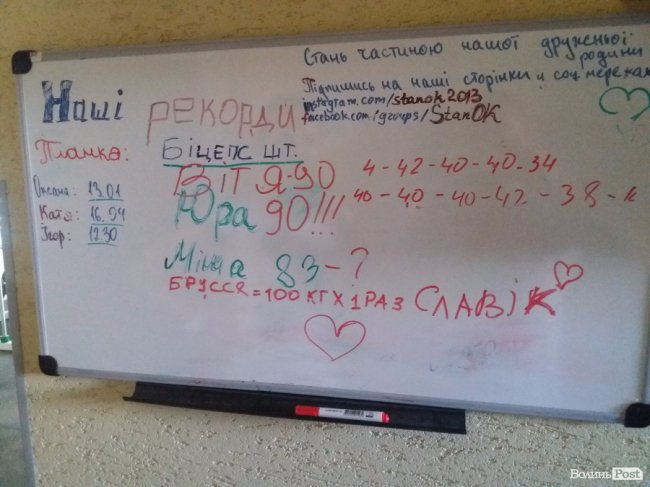 Стань частиною нашої дружньої
родини
Підпишись на наші сторінки у соц мережах
instagram.com/stanok2013
facebook.com/groups/StanOK
Наші рекорди
Планка:
Оксана: 13.01
Катя: 16.04
Ігор: 12.30
Біцепс шт.
Вітя-90
4-42-40-40-34
Юра 90!!!
40-40-40-42-38-
Міша 83-?
БРУССЯ=100 КГ Х 1 РАЗ СЛАВІК
ВолиньPost